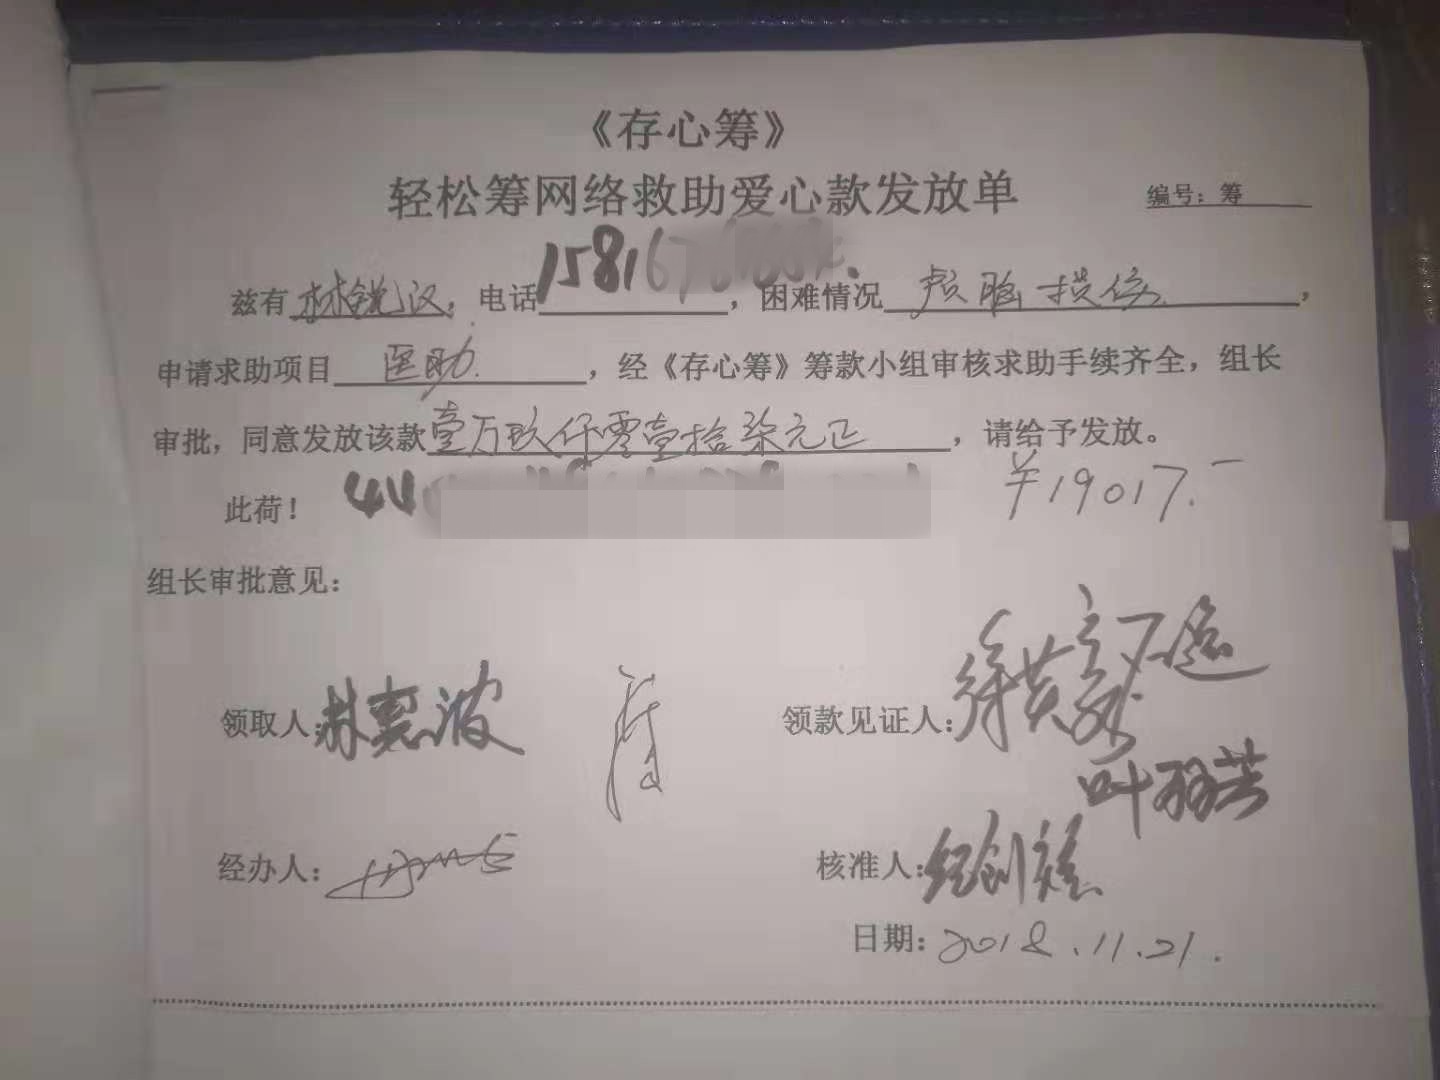 《存心筹》
轻松筹网络救助爱心款发放单
编号：筹
兹有林锐汉，电话15816，困难情况颅脑损伤，
申请求助项目医助.，经《存心筹》筹款小组审核求助手续齐全，组长
审批，同意发放该款壹万玖仟零壹拾柒元正，请给予发放。
¥19017.-
此荷！ 44
组长审批意见：
领取人：林奕波
领款见证人：
核准人：
经办人：
日期：2018.11.21.